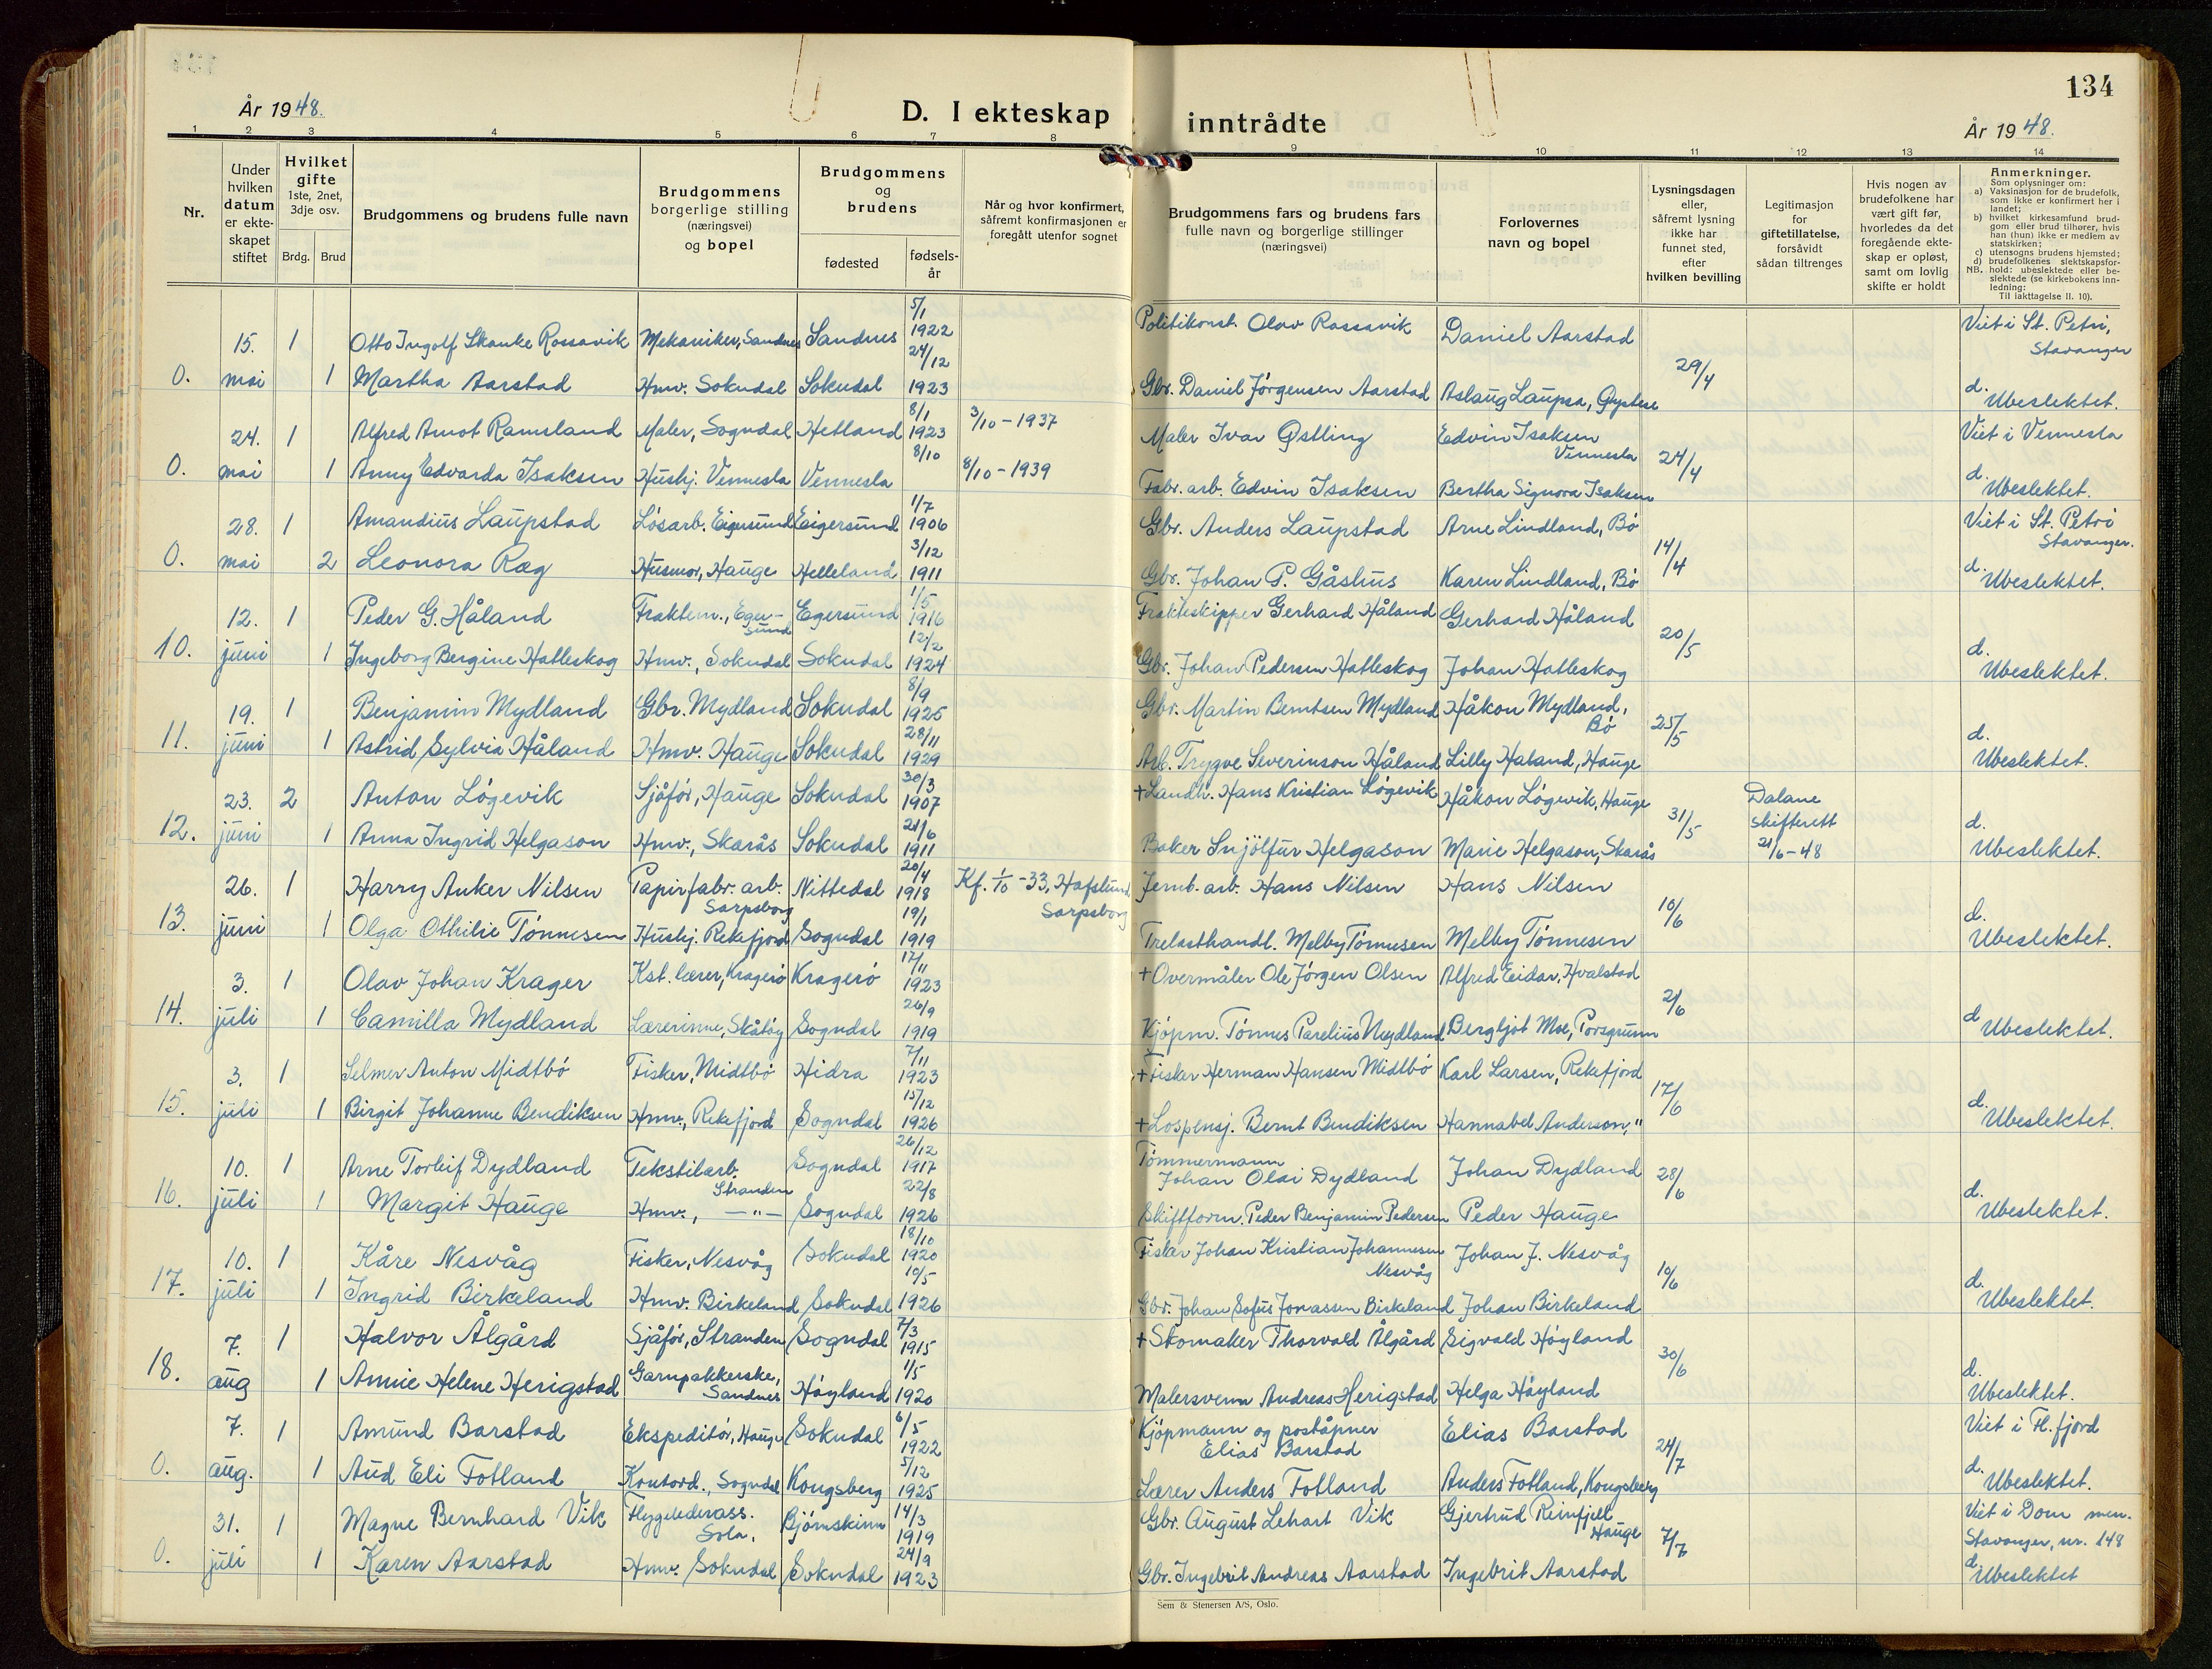 134
År 1948.
D. I ekteskap inntrådte
År 1948.
1 2 3 4 5 6 7 8 9 10 11 12 13 14
Nr.
Under hvilken datum er ekte-skapet stiftet
Hvilket gifte 1ste, 2net, 3dje osv.
Brdg. Brud
Brudgommens og brudens fulle navn
Brudgommens borgerlige stilling (næringsvei) og bopel
Brudgommens og brudens
fødested
fødsels-år
Når og hvor konfirmert, såfremt konfirmasjonen er foregått utenfor sognet
Brudgommens fars og brudens fars fulle navn og borgerlige stillinger (næringsvei)
Forlovernes navn og bopel
Lysningsdagen eller, såfremt lysning ikke har funnet sted, efter hvilken bevilling
Legitimasjon for giftetillatelse, forsåvidt sådan tiltrenges
Hvis nogen av brudefolkene har vært gift før, hvorledes da det foregående ekte-skap er opløst, samt om lovlig skifte er holdt
Anmerkninger.
Som oplysninger om:
a) Vaksinasjon for de brudefolk, som ikke er konfirmert her i landet;
b) hvilket kirkesamfund brud-gom eller brud tilhører, hvis han (hun) ikke er medlem av statskirken;
c) utensogns brudens hjemsted;
d) brudefolkenes slektskapsfor-hold: ubeslektede eller be-slektede (se kirkebokens inn-ledning:
NB.
Til iakttagelse II. 10).
15. 1 Otto Ingolf Skanke Rossavik Mekaniker, Sandnes Sandnes 5/1 1922 Politikonst. Olav Rossavik Daniel Aarstad Viet i St. Petri, Stavanger
0. mai 1 Martha Aarstad Hmv. Sokndal Sokndal 24/12 1923 Gbr. Daniel Jørgensen Aarstad Aslaug Laupsa, 29/4 d. Ubeslektet.
24. 1 Alfred Arnot Ramsland Maler, Sogndal Hetland 8/1 1923 3/10 - 1937 Maler Ivar Østling Edvin Isaksen Vennesla Viet i Vennesla
0. mai 1 Anny Edvarda Isaksen Hushj. Vennesla Vennesla 8/10 8/10 - 1939 Fabr. arb. Edvin Isaksen Bertha Signora Isaksen 24/4 d. Ubeslektet.
28. 1 Amandius Laupstad Løsarb. Eigersund Eigersund 1/7 1906 Gbr. Anders Laupstad Arne Lindland, Bø Viet i St. Petri Stavanger.
0. mai 2 Leonora Ræg Husmor, Hauge Helleland 3/12 1911 Gbr. Johan P. Gåshus Karen Lindland, Bø 14/4 d. Ubeslektet.
12. 1 Peder G. Håland Fraktem., Eger-sund Egersund 1/5 1916 Frakteskipper Gerhard Håland Gerhard Håland
10. juni 1 Ingeborg Bergine Hatleskog Hmv., Sokndal Sokndal 12/2 1924 Gbr. Johan Pedersen Hatleskog Johan Hatleskog 20/5 d. Ubeslektet.
19. 1 Benjamin Mydland Gbr. Mydland Sokndal 8/9 1925 Gbr. Martin Berntsen Mydland Håkon Mydland, Bø
11. juni 1 Astrid Sylvia Håland Hmv. Hauge Sokndal 28/11 1929 Arb. Trygve Severinson Håland Lilly Håland, Hauge 25/5 d. Ubeslektet.
23. 2 Anton Løgevik Sjåfør, Hauge Sokndal 30/3 1907 + Landh. Hans Kristian Løgevik Håkon Løgevik, Hauge Dalane skifterett 21/6 - 48
12. juni 1 Anna Ingrid Helgason Hmv., Skarås Sokndal 21/6 1911 Baker Snjólfur Helgason Marie Helgason, Skarås 31/5 d. Ubeslektet.
26. 1 Harry Anker Nilsen Papirfabr. arb. Sarpsborg Nittedal 20/4 1918 Kf. 1/10 - 33, Hafslund Sarpsborg Jernb. arb. Hans Nilsen Hans Nilsen
13. juni 1 Olga Othilie Tønnesen Hushj. Rekefjord Sogndal 19/1 1919 Trelasthandl. Melby Tønnesen Melby Tønnesen 10/6 d. Ubeslektet.
3. 1 Olav Johan Krager Kst. lærer, Kragerø Kragerø 17/11 1923 + Overmåler Ole Jørgen Olsen Alfred Eidar, Hvalstad
14. juli 1 Camilla Mydland Lærerinne, Skåtøy Sogndal 26/9 1919 Kjøpm. Tønnes Parelius Mydland Bergljot Moe, Porsgrunn 2/6 d Ubeslektet.
3. 1 Selmer Anton Midtbø Fisker, Midtbø Hidra 7/11 1923 + Fisker Herman Hansen Midtbø Karl Larsen, Rekefjord
15. juli 1 Birgit Johanne Bendiksen Hmv., Rekefjord Sogndal 15/12 1926 + Lospensj. Bernt Bendiksen Hannabel Anderson, " 17/6 d. Ubeslektet.
10. 1 Arne Torleif Dydland Tekstilarb. Stranden Sogndal 26/12 1917 Tømmermann Johan Olai Dydland Johan Dydland
16. juli 1 Margit Hauge Hmv., —"— Sogndal 22/8 1926 Skiftform. Peder Benjamin Pedersen Peder Hauge 28/6 d. Ubeslektet.
10. 1 Kåre Nesvåg Fisker, Nesvåg Sokndal 18/10 1920 Fisker Johan Kristian Johannesen Nesvåg Johan J. Nesvåg
17. juli 1 Ingrid Birkeland Hmv. Birkeland Sokndal 10/5 1926 Gbr. Johan Sofus Jonassen Birkeland Johan Birkeland 10/6 d. Ubeslektet.
7. 1 Halvor Ålgård Sjåfør, Stranden Sogndal 7/3 1915 + Skomaker Thorvald Ålgård Sigvald Høyland
18. aug 1 Annie Helene Herigstad Garnpakkerske, Sandnes Høyland 1/5 1920 Malersvenn Andreas Herigstad Helga Høyland 30/6 d. Ubeslektet.
7. 1 Amund Barstad Ekspeditør, Hauge Sokndal 6/5 1922 Kjøpmann og poståpner Elias Barstad Elias Barstad Viet i Fl. fjord
0. aug. 1 Aud Eli Fotland Kontord., Sogndal Kongsberg 5/12 1925 Lærer Anders Fotland Anders Fotland, Kongsberg 24/7 d. Ubeslektet.
31. 1 Magne Bernhard Vik Flygelederass. Sola, Bjørnskinn 14/3 1919 Gbr. August Lehart Vik Gjertrud Reinfjell Hauge Viet i Dom men. Stavanger, nr. 148
0. juli 1 Karen Aarstad Hmv. Sokndal Sokndal 24/9 1923 Gbr. Ingebrit Andreas Aarstad Ingebrit Aarstad 7/7 d. Ubeslektet
Sem & Stenersen A/S, Oslo.